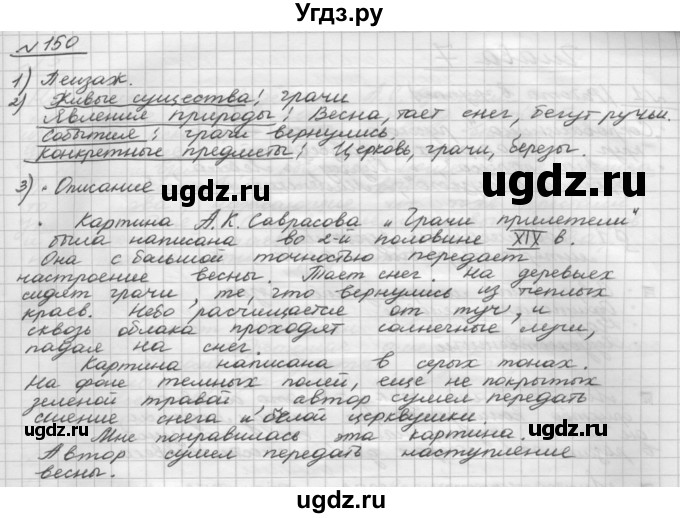 Угдз.ру
№150
1) Пейзаж.
2) Живые существа: грачи
Явления природы: Весна, тает снег, бегут ручьи.
События: грачи вернулись.
Конкретные предметы: Церковь, грачи, березы.
3) Описание
Картина А.К. Саврасова „Грачи прилетели"
была написана во 2-й половине XIX в.
Она с большой точностью передает
настроение весны. Тает снег. На деревьех
сидят грачи, те, что вернулись из теплых
краев. Небо расчищается от туч, и
сквозь облака проходят солнечные лучи,
падая на снег.
Картина написана в серых тонах.
На фоне темных полей, еще не покрытых
зеленой травой, автор сумел передать
сияние снега и белой церквушки.
Мне понравилась эта картина.
Автор сумел передать наступление
весны.
ugdz.ru
ugdz.ru
ugdz.ru
ugdz.ru
ugdz.ru
ugdz.ru
ugdz.ru